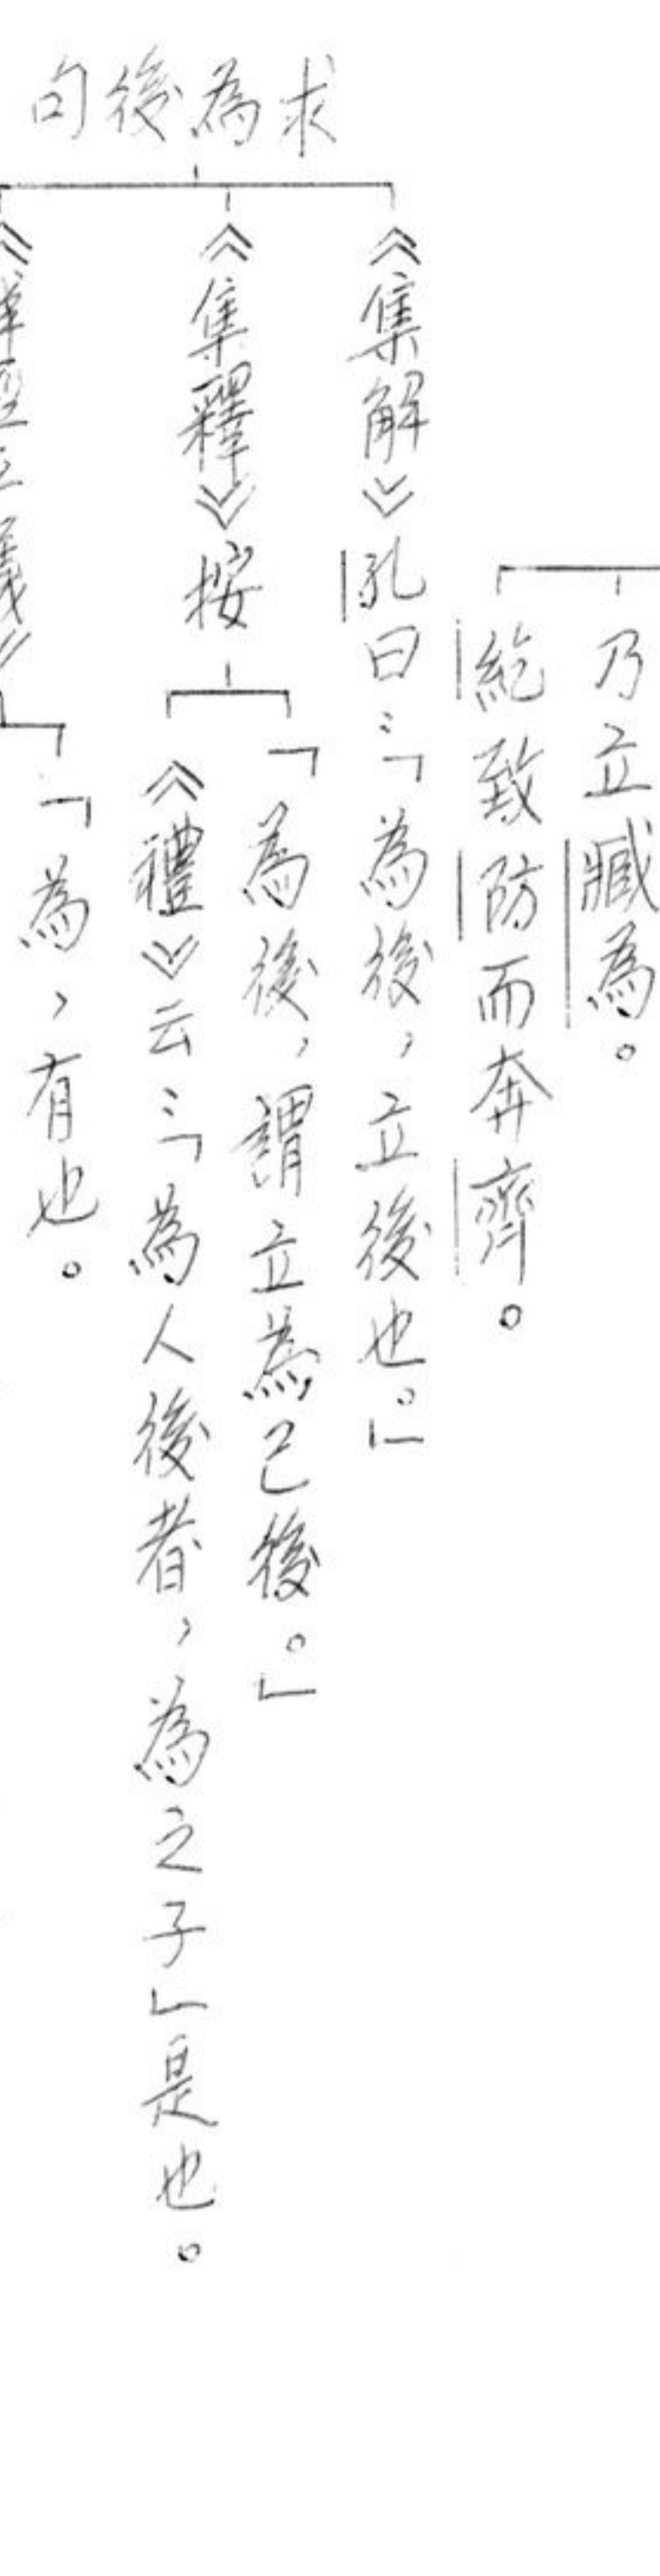 乃立臧為。
紇致防而奔齊。
求為後句
《集解》孔曰：「為後，立後也。」
《集釋》按
「為後，謂立為己後。」
《禮》云：「為人後者，為之子」是也。
「為，有也。